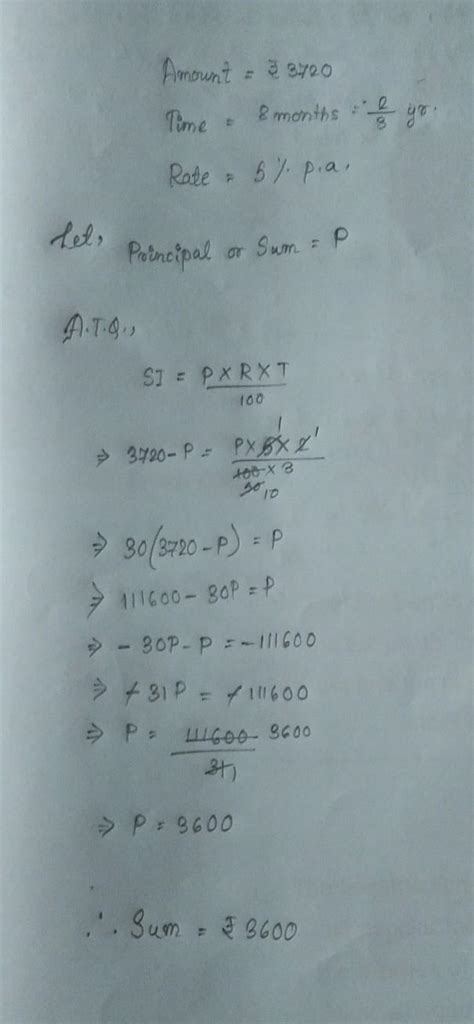 Amount = ₹ 3720
Time = 8 months = 2/3 yr.
Rate = 5 % p.a.
Let,
Principal or Sum = P
A.T.Q.,
SI = P X R X T / 100
⇒ 3720 - P = P X 5 X 2 / 100 X 3
1 1
50 10
⇒ 30(3720 - P) = P
⇒ 111600 - 30P = P
⇒ - 30P - P = - 111600
⇒ - 31P = - 111600
⇒ P = 111600 / 31 3600
1
⇒ P = 3600
∴ Sum = ₹ 3600